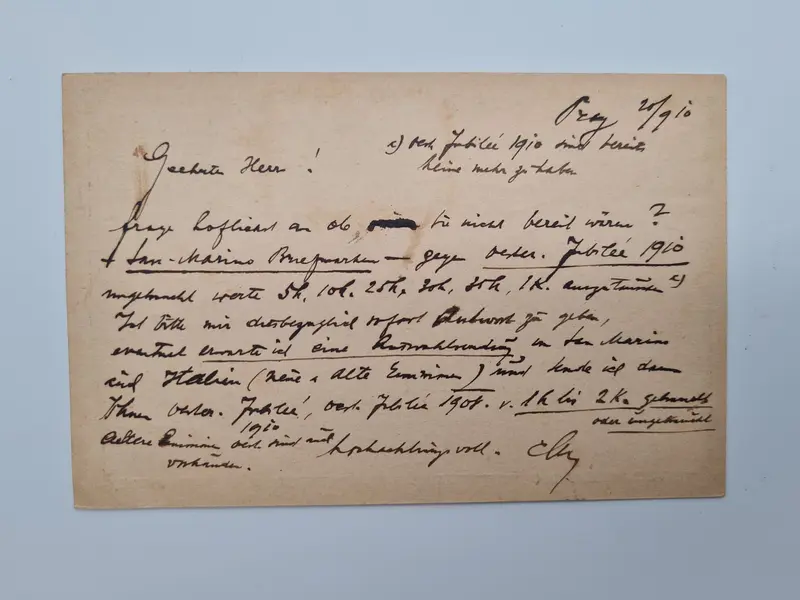 Prag 20/9 10
x) oest. Jubileé 1910 sind bereits
keine mehr zu haben
Geehrter Herr !
frage höflichst an ob Sie nicht bereit wären ?
San-Marino Briefmarken – gegen oester. Jubileé 1910
ungebraucht werte 5h, 10h, 25h, 30h, 35h, 1K. x)
Ich bitte mir diesbezüglich sofort Antwort zu geben,
eventuel erwarte ich eine Auswahlsendung in San Marino
und Italien (neue u alte Emissionen) und sende ich dann
Ihnen oester. Jubileé, oest. Jubileé 1908. v. 1h bis 2K. gebraucht
1910
oder ungebraucht
aeltere Emissione oest. sind auch
vorhanden.
hochachtungsvoll.